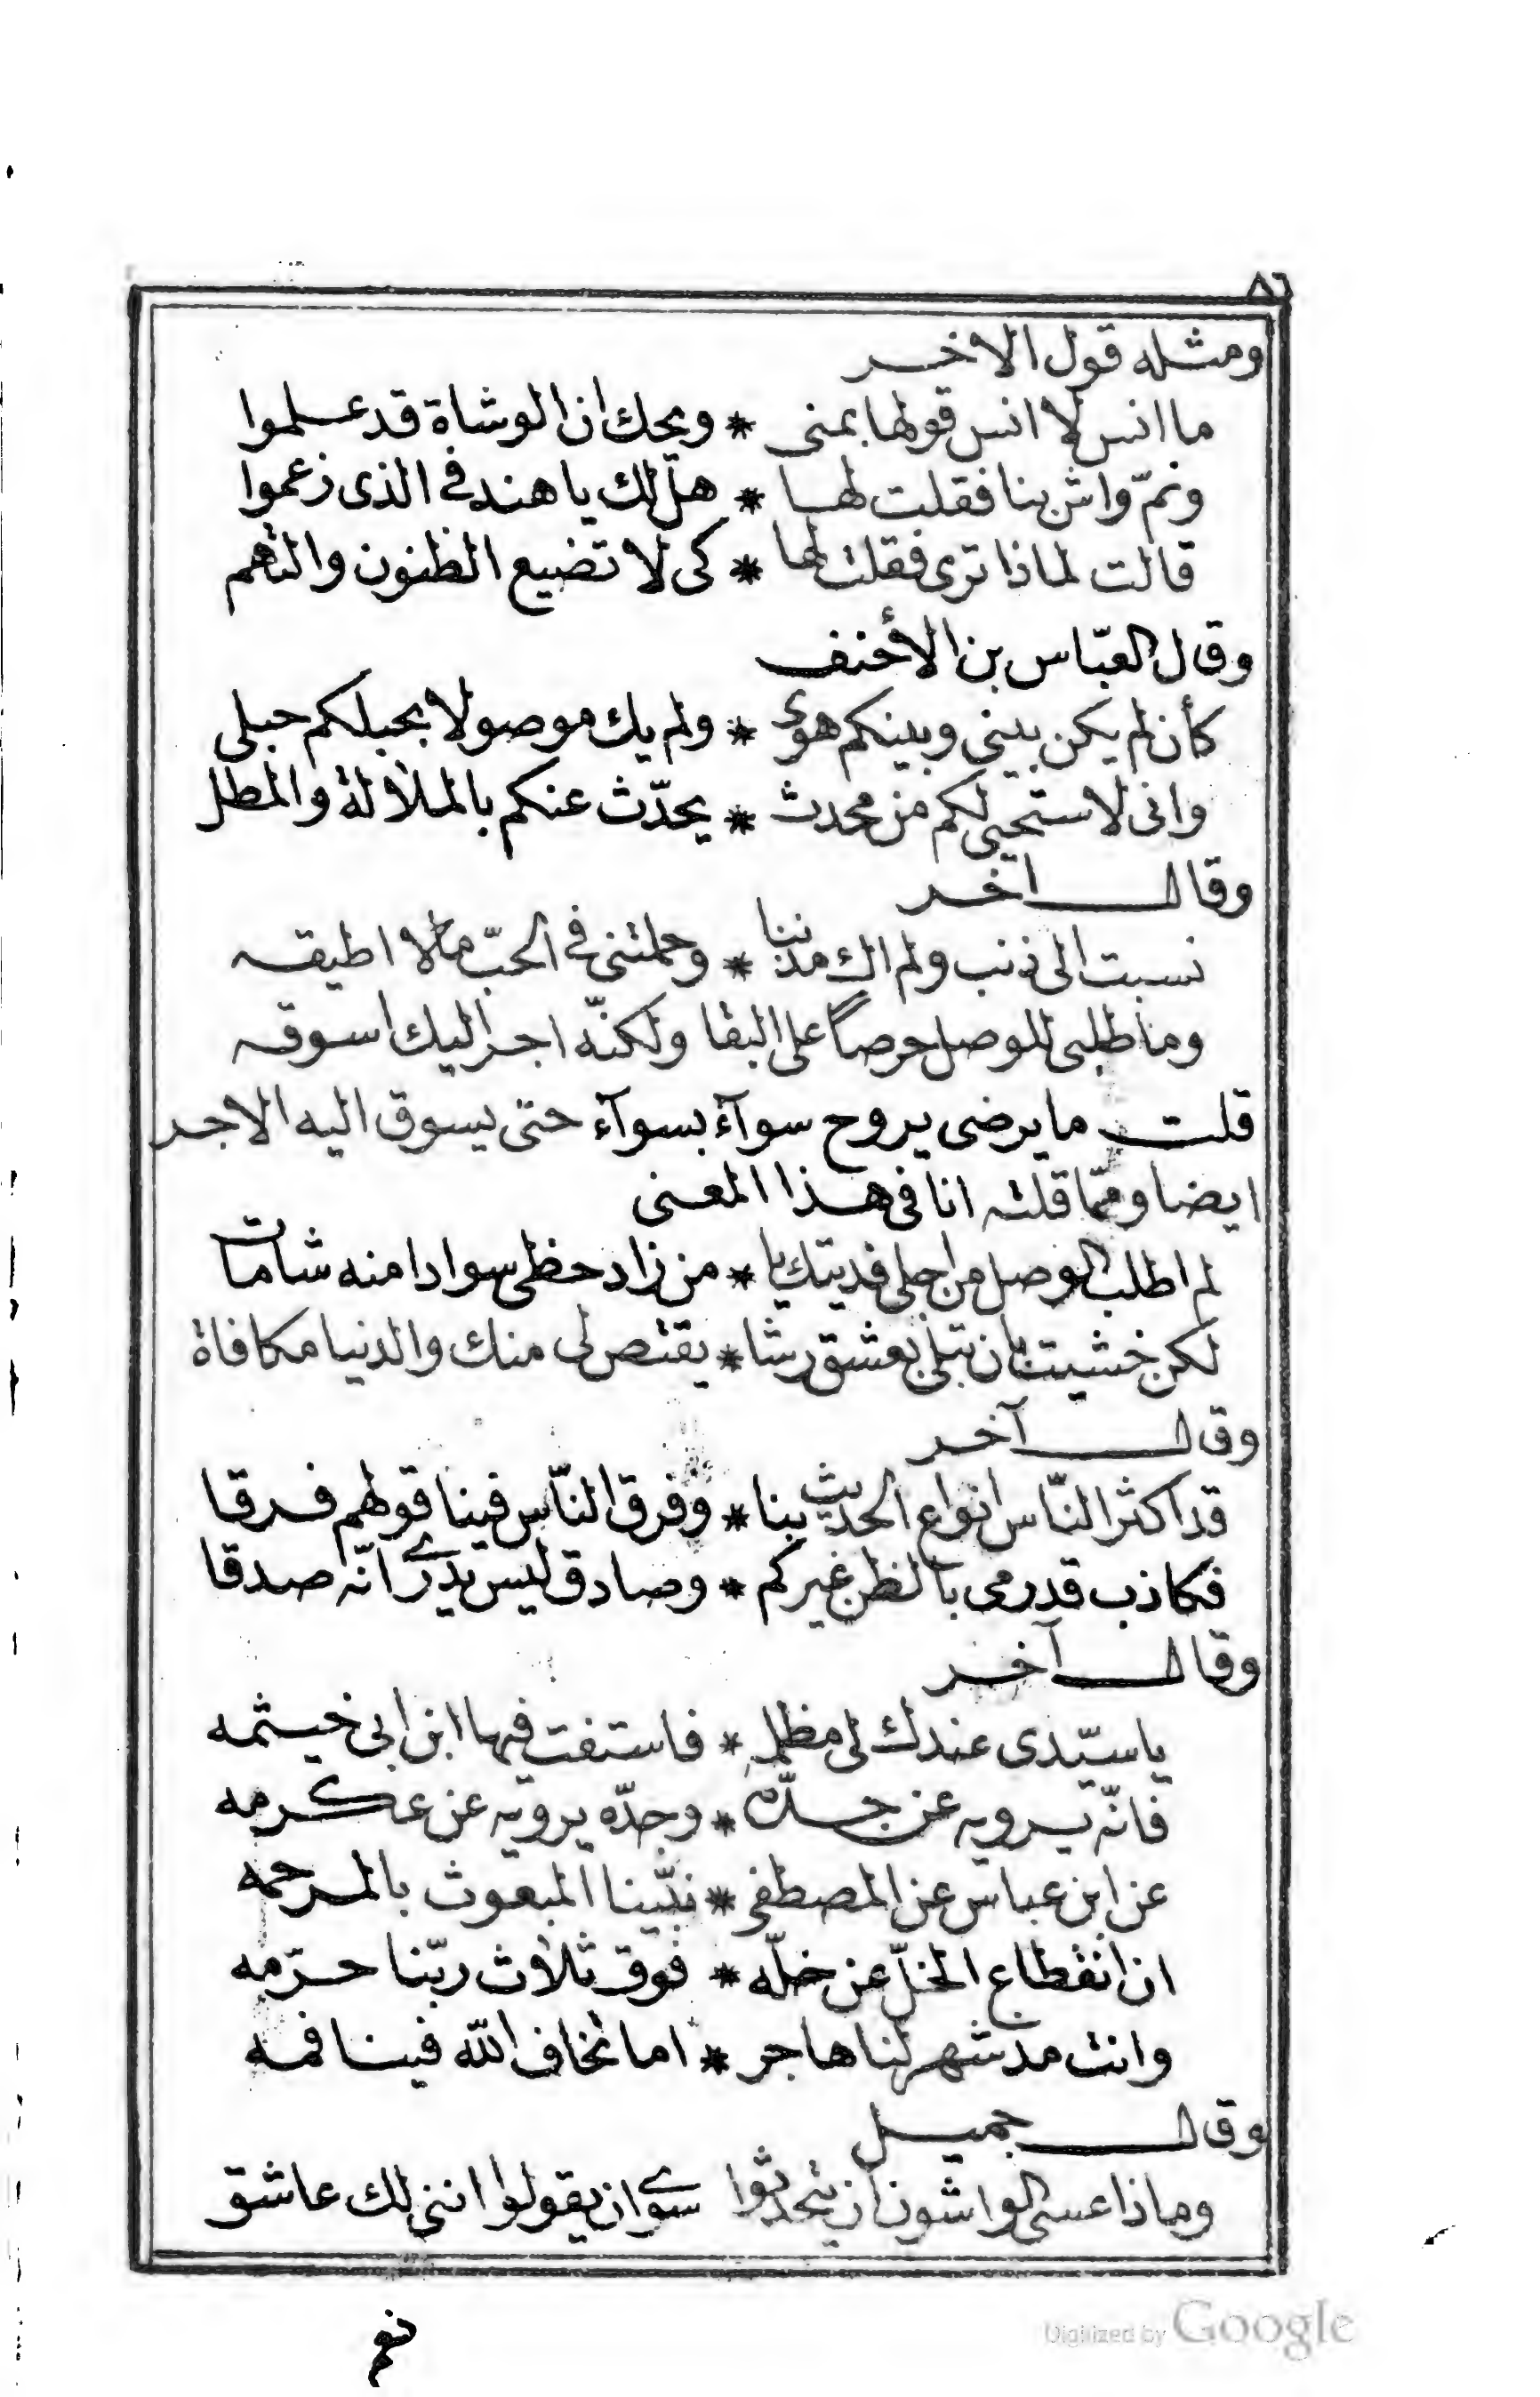 ٨٦
ومثله قول الاخر
ما انس لا انس قولها بمنى * ويحك ان الوشاة قد علموا
ونمّ واش بنا فقلت لها * هل لك يا هند فى الذى زعموا
قالت لماذا ترى فقلت لها * كى لا تضيع الظنون والتهم
وقال العبّاس بن الأخنف
كأن لم يكن بينى وبينكم هوى * ولم يك موصولا بحبلكم حبلى
وانى لاستحيى لكم من محدث * يحدّث عنكم بالملالة والمطل
وقال اخر
نسبت الى ذنب ولم اك مذنبا * وحملتنى فى الحبّ مالا اطيقه
وما طلبى للوصل حرصاً على البقا ولكنّه اجر اليك اسوقه
قلت ما يرضى يروح سوآء بسوآء حتى يسوق اليه الاجر
ايضا وممّا قلته انا فى هذا المعنى
لم اطلب الوصل من اجلى فديتك يا * من زاد حظى سوادا منه شامات
لكن خشيت بان تبلى بعشق رشا * يقتص لى منك والدنيا مكافاة
وقال آخر
قد اكثر النّاس انواع الحديث بنا * وفرق النّاس فينا قولهم فرقا
فكاذب قد رمى بالظن غيركم * وصادق ليس يدرى انّه صدقا
وقال آخر
يا سيّدى عندك لى مظلمه * فاستفت فيها ابن ابى خيثمه
فانّه يرويه عن جدّه * وجدّه يرويه عن عكرمه
عن ابن عباس عن المصطفى * نبيّنا المبعوث بالمرحمه
ان انقطاع الخلّ عن خلّه * فوق ثلاث ربّنا حرّمه
وانت مذ شهر لنا هاجر * اما تخاف الله فينا فمه
وقال جميل
وماذا عسى الواشون ان يتحدثوا سوى ان يقولوا اننى لك عاشق
نعم
Digitized by Google